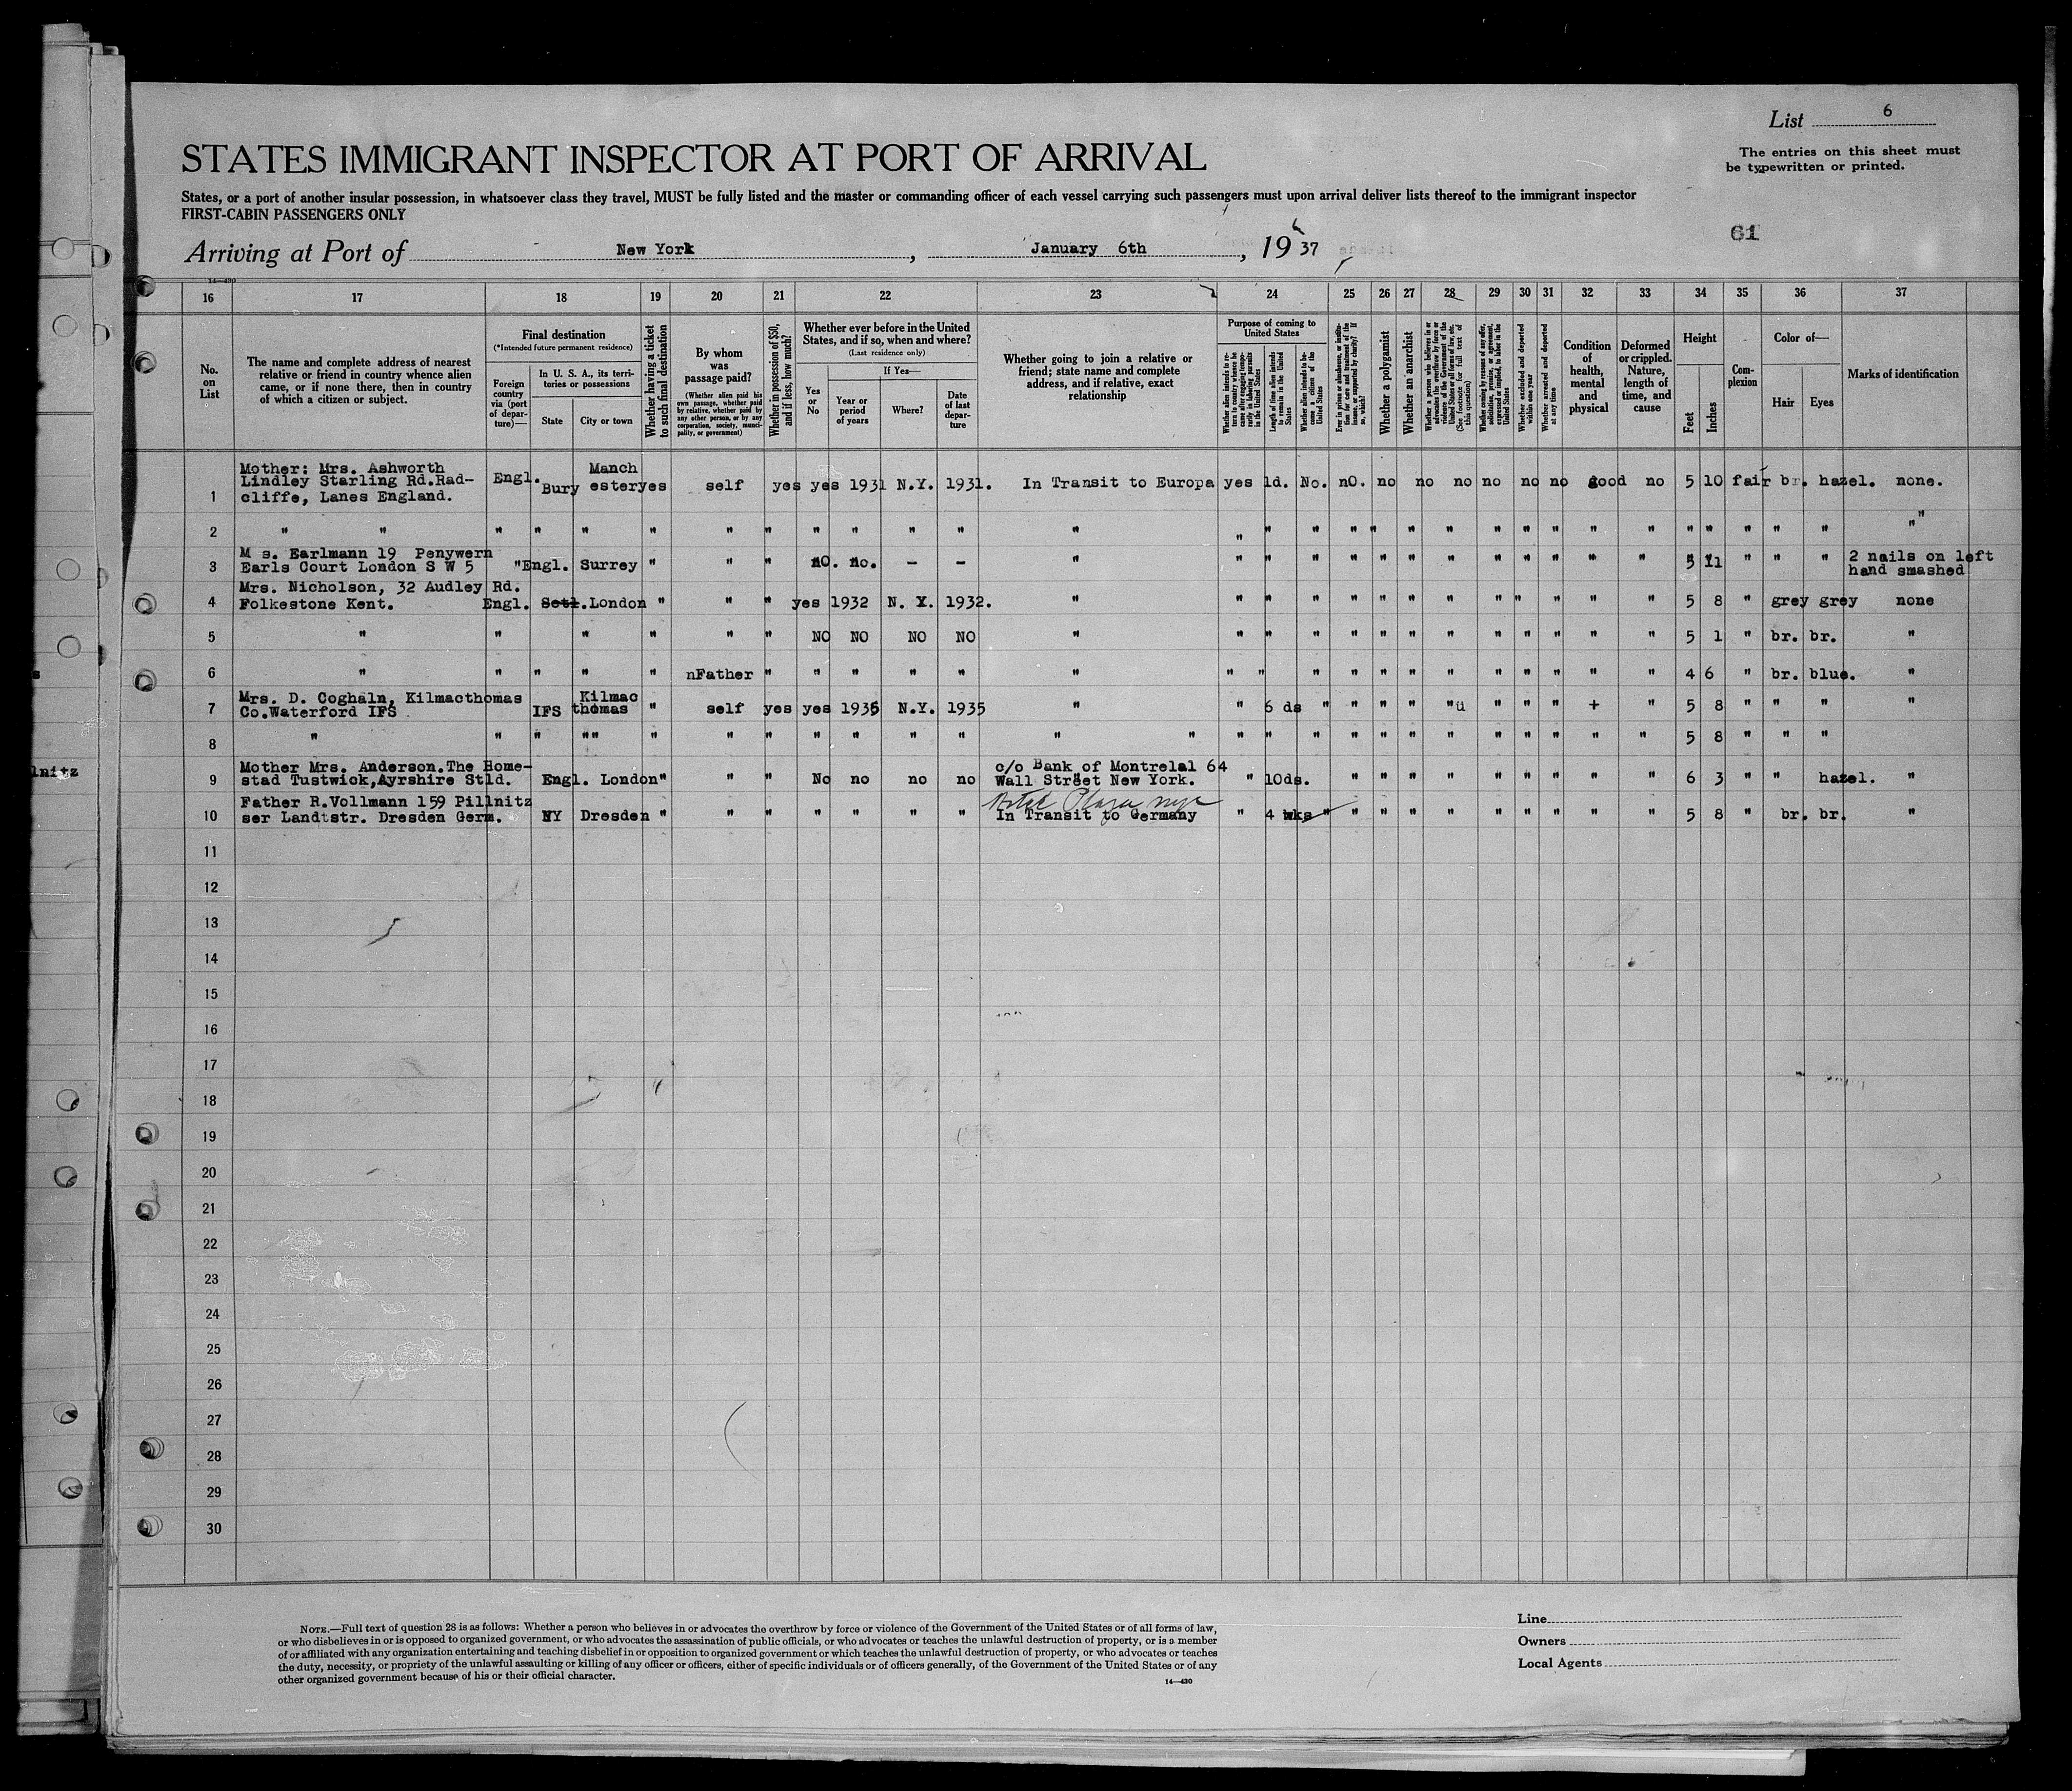 List 6
The entries on this sheet must
be typewritten or printed.
STATES IMMIGRANT INSPECTOR AT PORT OF ARRIVAL
States, or a port of another insular possession, in whatsoever class they travel, MUST be fully listed and the master or commanding officer of each vessel carrying such passengers must upon arrival deliver lists thereof to the immigrant inspector
FIRST-CABIN PASSENGERS ONLY
61
Arriving at Port of New York, January 6th, 19 37
14—430
16 17 18 19 20 21 22 23 24 25 26 27 28 29 30 31 32 33 34 35 36 37
No.
on
List
The name and complete address of nearest
relative or friend in country whence alien
came, or if none there, then in country
of which a citizen or subject.
Final destination
(*Intended future permanent residence)
Foreign
country
via (port
of depar-
ture)—
In U. S. A., its terri-
tories or possessions
State
City or town
Whether having a ticket
to such final destination
By whom
was
passage paid?
(Whether alien paid his
own passage, whether paid
by relative, whether paid by
any other person, or by any
corporation, society, munci-
pality, or government)
Whether in possession of $50,
and if less, how much?
Whether ever before in the United
States, and if so, when and where?
(Last residence only)
Yes
or
No
If Yes—
Year or
period
of years
Where?
Date
of last
depar-
ture
Whether going to join a relative or
friend; state name and complete
address, and if relative, exact
relationship
Purpose of coming to
United States
Whether alien intends to re-
turn to country whence he
came after engaging tempo-
rarily in laboring pursuits
in the United States
Length of time alien intends
to remain in the United
States
Whether alien intends to be-
come a citizen of the
United States
Ever in prison or almshouse, or institu-
tion for care and treatment of the
insane, or supported by charity? If
so, which?
Whether a polygamist
Whether an anarchist
Whether a person who believes in or
advocates the overthrow by force or
violence of the Government of the
United States or all forms of law, etc.
(See footnote for full text of
this question)
Whether coming by reason of any offer,
solicitation, promise, or agreement,
expressed or implied, to labor in the
United States
Whether excluded and deported
within one year
Whether arrested and deported
at any time
Condition
of
health,
mental
and
physical
Deformed
or crippled.
Nature,
length of
time, and
cause
Height
Feet
Inches
Com-
plexion
Color of—
Hair
Eyes
Marks of identification
Mother: Mrs. Ashworth Manch
Lindley Starling Rd.Rad- Engl. Bury esteryes self yes yes 1931 N.Y. 1931. In Transit to Europa yes 1d. No. nO. no no no no no no good no 5 10 fair br. hazel. none.
1 cliffe, Lanes England.
2 " " " " " " " " " " " " " " " " " " " " " " " " " " " " " " "
M s. Earlmann 19 Penywern 2 nails on left
3 Earls Court London S W 5 "Engl. Surrey " " " nO. no. – – " " " " " " " " " " " " 5 11 " " " hand smashed
Mrs. Nicholson, 32 Audley Rd.
4 Folkestone Kent. Engl. Sctl.London " " " yes 1932 N. Y. 1932. " " " " " " " " " " " " 5 8 " grey grey none
5 " " " " " " NO NO NO NO " " " " " " " " " " " " " 5 1 " br. br. "
6 " " " " " nFather " " " " " " " " " " " " " " " " " " 4 6 " br. blue. "
Mrs. D. Coghaln, Kilmacthomas Kilmac
7 Co.Waterford IFS IFS thomas " self yes yes 1935 N.Y. 1935 " " 6 ds " " " " "u " " " + " 5 8 " " " "
8 " " " "" " " " " " " " " " " " " " " " " " " " " " " 5 8 " " "
Mother Mrs. Anderson.The Home- c/o Bank of Montrelal 64
9 stad Tustwick,Ayrshire Stld. Engl. London" " " No no no no Wall Street New York. " 10ds. " " " " " " " " " 6 3 " " hazel. "
Father R.Vollmann 159 Pillnitz Hotel Plaza nyc
10 ser Landtstr. Dresden Germ. NY Dresden " " " " " " " In Transit to Germany " 4 wks " " " " " " " " " " 5 8 " br. br. "
11
12
13
14
15
16
17
18
19
20
21
22
23
24
25
26
27
28
29
30
lnitz
NOTE.—Full text of question 28 is as follows: Whether a person who believes in or advocates the overthrow by force or violence of the Government of the United States or of all forms of law,
or who disbelieves in or is opposed to organized government, or who advocates the assassination of public officials, or who advocates or teaches the unlawful destruction of property, or is a member
of or affiliated with any organization entertaining and teaching disbelief in or opposition to organized government or which teaches the unlawful destruction of property, or who advocates or teaches
the duty, necessity, or propriety of the unlawful assaulting or killing of any officer or officers, either of specific individuals or of officers generally, of the Government of the United States or of any
other organized government because of his or their official character.
14—430
Line
Owners
Local Agents